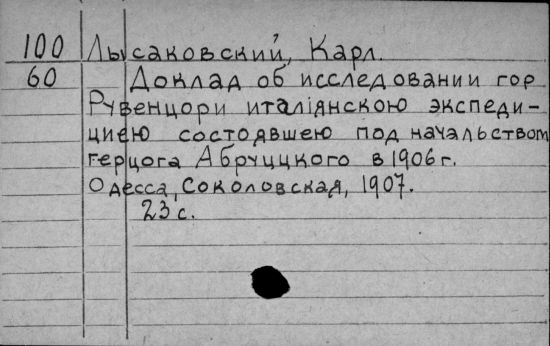 100 Лысаковский, Карл.
60 Доклад об исследовании гор
Рувенцори италіянскою экспеди-
циею состоявшею под начальством
герцога Абруццкого в 1906 г.
Одесса, Соколовская, 1907.
23 с.